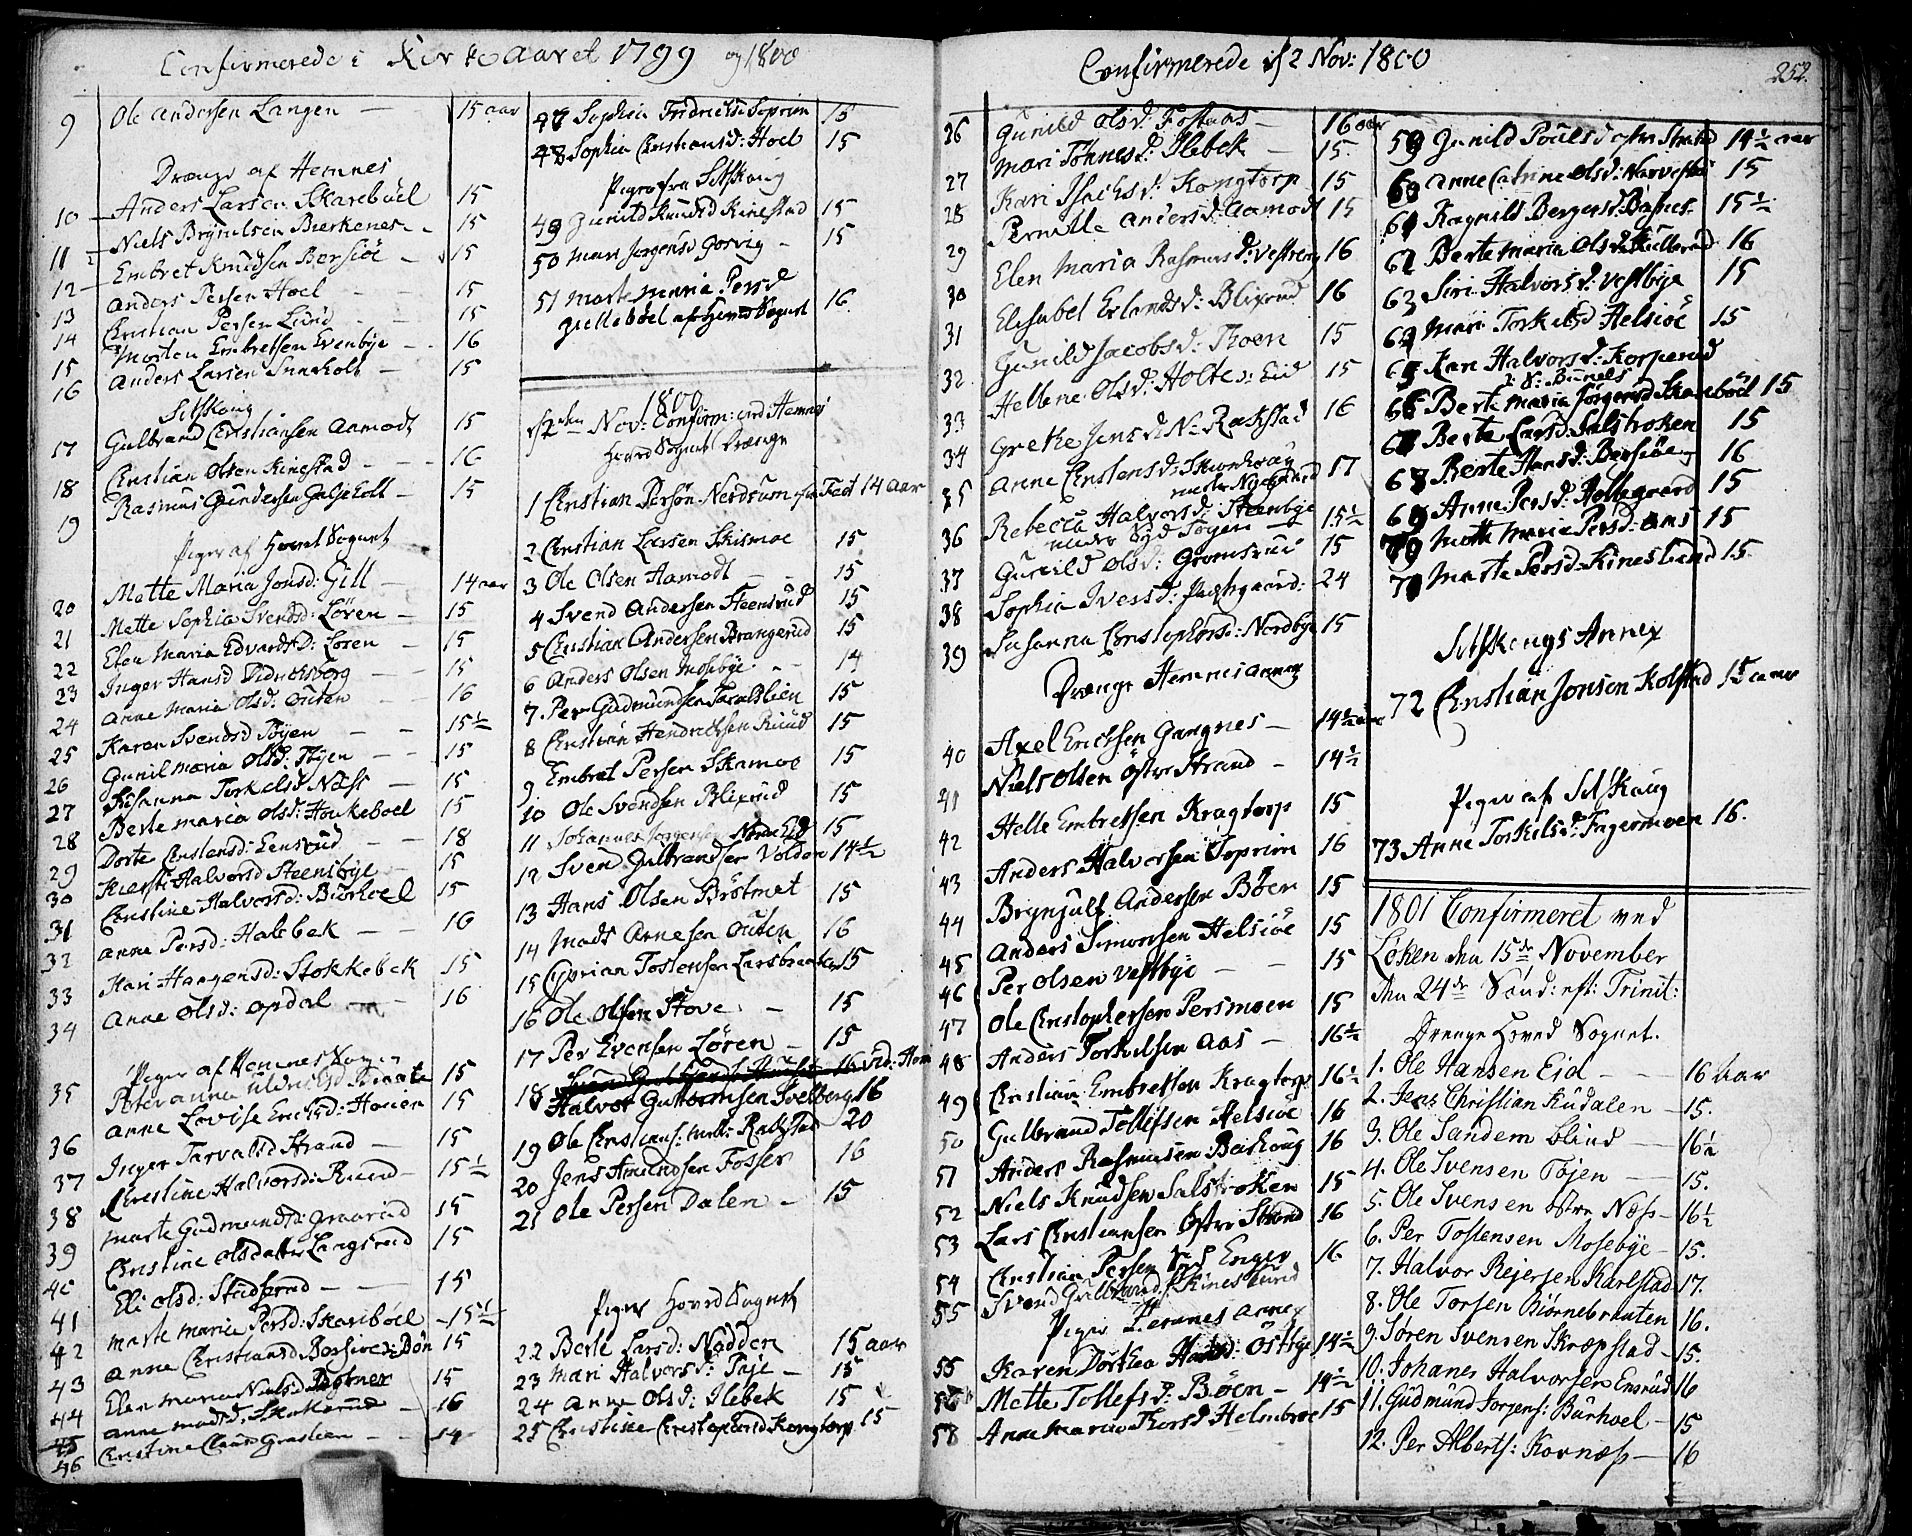 Confirmerede i Kirke Aaret 1799 og 1800
9 Ole Andersen Langen — 15 aar
Drænge af Hemnes
10 Anders Larsen Skareböel 15
11 Niels Brÿnilsen Bierkenes 15
12 Embret Knudsen Bersiöe 15
13 Anders Persen Hoel 15
14 Christian Persen Lund 15
15 Morten Embretsen Evenbÿe 16
16 Anders Larsen 15
Setskoug
17 Gulbrand Christiansen Aamodt 15
18 Christian Olsen Kinestad 16
19 Rasmus Gundersen 15
Piger af Hovet Sognet
20 Mette Maria Jonsd: Gill 14 aar
21 Mette Sophia Svendsd: Lören 15
22 Elen Maria Edvardsd: Lören 15
23 Inger Hansd 15
24 Anne Maria Olsd: Outen 16
25 Karen Svendsd Töÿen 15½
26 Gunil Maria Olsd: Töÿen 15
27 Susanna Torkelsd Næss 15
28 Berte Maria Olsd: Houkeboel 15
29 Dorte Christensd: Eensrud 18
30 Kiersti Halvorsd Steensbÿe 15
31 Christine Halvorsd: Biörhoel 15
32 Anne Persd: Halebek 16
33 Kari Haagensd: Stokkebek 15
34 Anne Olsd: Opdal 16
Piger af Hemnes Sogn
35 Peter Anna 15
36 Anne Lovise Erichsd: Houer 15
37 Inger Tarvaldsd Strand 15
38 Christine Halvorsd: Ruud 15½
39 Marte Gudmundsd: Graarud 15
40 Christine Olsdatter Langsrud 15
41 Eli Olsd: 15
42 Marte Maria Persd: Skareböel 15½
43 Anne Christiansd Bersiöe 15
44 Elen Maria Nielsd 15
45 Anne Madsd: 16
46 Christine 14
47 Sophia Fridrichsd Soprim 15
48 Sophia Christiansd: Hoel 15
Piger fra Setskoug
49 Gunild Knudsd Kinestad 15
50 Mari Jörgensd Gorvig 15
51 Marte Maria Persd
Gilleböel af Hoved Sognet 16
1800
d 2den Nov: Confirm: ved Hemnes
Hoved Sognet Drænge
1 Christian Persön Nordsum 14 aar
2 Christian Larsen Skismoe 15
3 Ole Olsen Aamodt 15
4 Svend Andersen Steensrud 15
5 Christian Andersen Prangerud 15
6 Anders Olsen Mosebÿe 14
7. Per Gudmundsen 15
8 Christian Hendrichsen Ruud 15
9 Embret Persen Skamoe 15
10 Ole Svendsen Blixrud 15
11 Johannes Jörgensen Nordre Eid 15
12 Sven Gulbrandsen Volden 14½
13 Hans Olsen Brötmet 15
14 Mads Arnesen Outen 16
15 Cyprian Tostensen Larsbraaten 15
16 Ole Olsen Stove 15
17 Per Evensen Lören 15
18 Halvor Guttormsen Tvetberg 16
19 Ole Christians: Mell: Rakstad 20
20 Jens Amundsen Fosser 16
21 Ole Persen Dalen 15
Piger Hoved Sognet
22 Berte Larsd: Nadden 15 aar
23 Mari Halvorsd: Taje 15
24 Anne Olsd: Ilebek 15
25 Christine Christophersd Kongtorp 15
Confirmerede d 2 Nov: 1800
252.
26 Gunild Olsd: Fossaas 16 aar
27 Mari Tönnesd: Ilebek 15
28 Kari Isachsd: Kongtorp 15
29 Pernille Andersd: Aamodt 15
30 Elen Maria Rasmusd: Vestreng 16
31 Elisabet Erlandsd: Blixrud 16
32 Gunild Jacobsd: Thoen 15
33 Hellene Olsd: Holte v: Eid 15
34 Grethe Jensd: N: Rakstad 16
35 Anne Christensd: Skionhoug 17
36 Rebecca Halvorsd: Steenbÿe 15½
37 Gunild Olsd: Gromsrud 15
38 Sophia Iversd: Prestgaard: 24
39 Susanna Christophersd: Nordbÿe 15
Drænge Hemnes Annex
40 Axel Erichsen Gangnes 14½ aar
41 Niels Olsen Östre Strand 14½
42 Helle Embretsen Kragtorp 15
43 Anders Halvorsen Soprim 16
44 Brynjulf Andersen Böen 15
45 Anders Simonsen Helsiöe 15
46 Per Olsen Vestbÿe 15
47 Ole Christophersen Persmoen 15
48 Anders Torkelsen Aas 16½
49 Christian Embretsen Kragtorp 16½
50 Gulbrand Tollefsen Helsiöe 16
51 Anders Rasmusen Bakoug 16
52 Niels Knudsen Salstroken 15
53 Lars Christiansen Östre Strand 16
54 Christian Persen Enger 16
55 Svend Gulbrands: Kineslund
Piger Hemnes Annex
55 Karen Dorthea Östbÿe 14½
56 Mette Tollefsd: Böen 14½
58 Anne Maria Thorsd Holmbroe 15
59 Gunild Poulsd östre Strand 14½ aar
60 Anne Catrine Olsd: Narvestad 15
61 Ragnild Bergersd: Basnes 15½
62 Berte Maria Olsd: Kullerud 16
63 Siri Halvorsd: Vestbÿe 15
64 Mari Torkelsd Helsiöe 15
65 Kari Halvorsd: Korperud
66 Berte Maria Jörgensd Skareböel 15
67 Berte Larsd: Salstroken 15
68 Berte Hansd: Bersiöe 16
69 Anne Persd: Hellegaard 15
70 Mette Maria Persd: Aas 15
71 Marte Persd: Kineslund 15
Setskougs Annex
72 Christian Jonsen Kolstad 15 aar
Piger af Setskoug
73 Anne Torkilsd: Ingermoen 16.
1801 Confirmeret ved
Löken den 15de November
den 24de Sönd: eft: Trinit:
Drenge Hoved Sognet.
1. Ole Hansen Eid 16 Aar
2. Jens Christian Kudalen 15.
3. Ole Sandem blind 16½
4. Ole Svensen Töjen 15.
5. Ole Svensen östre Næss 16½
6. Per Tostensen Mosebÿe 15.
7. Halvor Rejersen Karlstad 17.
8. Ole Torsen Björnebraaten 16.
9. Sören Svensen Skræpstad 15.
10. Johanes Halvorsen Ensrud 16
11. Gudmund Jörgens: Burhoel 15
12. Per Alberts: Kornæss 16